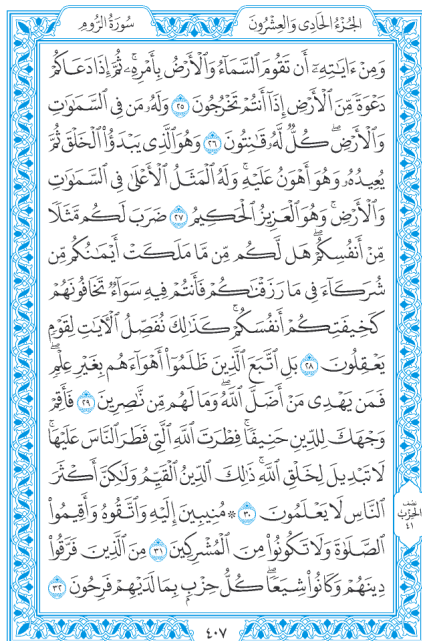 الجُزْءُ الحَادِى وَالعِشْرُونَ
سُورَةُ الرُّومِ
وَمِنْ ءَايَٰتِهِۦٓ أَن تَقُومَ ٱلسَّمَآءُ وَٱلْأَرْضُ بِأَمْرِهِۦ ۚ ثُمَّ إِذَا دَعَاكُمْ
دَعْوَةً مِّنَ ٱلْأَرْضِ إِذَآ أَنتُمْ تَخْرُجُونَ ٢٥ وَلَهُۥ مَن فِى ٱلسَّمَٰوَٰتِ
وَٱلْأَرْضِ ۖ كُلٌّ لَّهُۥ قَٰنِتُونَ ٢٦ وَهُوَ ٱلَّذِى يَبْدَؤُا۟ ٱلْخَلْقَ ثُمَّ
يُعِيدُهُۥ وَهُوَ أَهْوَنُ عَلَيْهِ ۚ وَلَهُ ٱلْمَثَلُ ٱلْأَعْلَىٰ فِى ٱلسَّمَٰوَٰتِ
وَٱلْأَرْضِ ۚ وَهُوَ ٱلْعَزِيزُ ٱلْحَكِيمُ ٢٧ ضَرَبَ لَكُم مَّثَلًا
مِّنْ أَنفُسِكُمْ ۖ هَل لَّكُم مِّن مَّا مَلَكَتْ أَيْمَٰنُكُم مِّن
شُرَكَآءَ فِى مَا رَزَقْنَٰكُمْ فَأَنتُمْ فِيهِ سَوَآءٌ تَخَافُونَهُمْ
كَخِيفَتِكُمْ أَنفُسَكُمْ ۚ كَذَٰلِكَ نُفَصِّلُ ٱلْءَايَٰتِ لِقَوْمٍ
يَعْقِلُونَ ٢٨ بَلِ ٱتَّبَعَ ٱلَّذِينَ ظَلَمُوٓا۟ أَهْوَآءَهُم بِغَيْرِ عِلْمٍ ۖ
فَمَن يَهْدِى مَنْ أَضَلَّ ٱللَّهُ ۖ وَمَا لَهُم مِّن نَّٰصِرِينَ ٢٩ فَأَقِمْ
وَجْهَكَ لِلدِّينِ حَنِيفًا ۚ فِطْرَتَ ٱللَّهِ ٱلَّتِى فَطَرَ ٱلنَّاسَ عَلَيْهَا ۚ
لَا تَبْدِيلَ لِخَلْقِ ٱللَّهِ ۚ ذَٰلِكَ ٱلدِّينُ ٱلْقَيِّمُ وَلَٰكِنَّ أَكْثَرَ
ٱلنَّاسِ لَا يَعْلَمُونَ ٣٠ ۞ مُنِيبِينَ إِلَيْهِ وَٱتَّقُوهُ وَأَقِيمُوا۟
ٱلصَّلَوٰةَ وَلَا تَكُونُوا۟ مِنَ ٱلْمُشْرِكِينَ ٣١ مِنَ ٱلَّذِينَ فَرَّقُوا۟
دِينَهُمْ وَكَانُوا۟ شِيَعًا ۖ كُلُّ حِزْبٍۭ بِمَا لَدَيْهِمْ فَرِحُونَ ٣٢
نصف
الحزب
٤١
٤٠٧